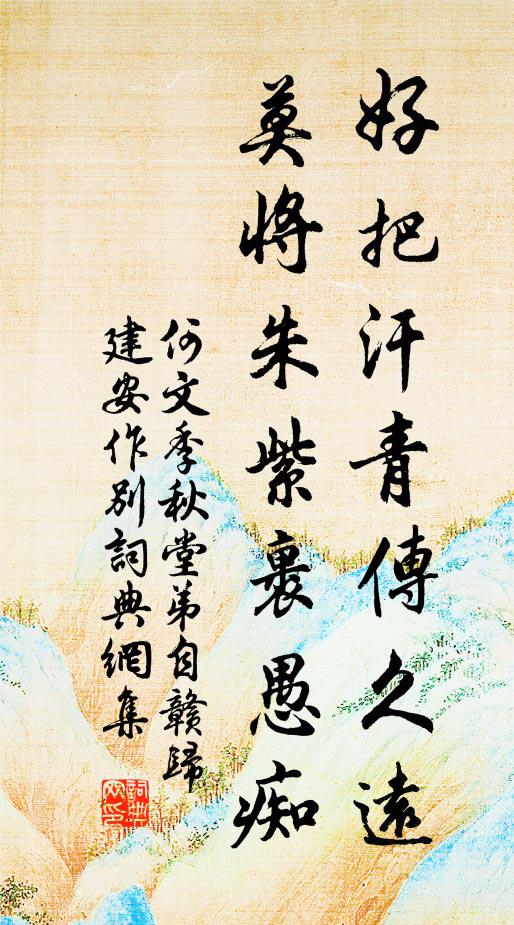 好把汗青傳久遠
莫將朱紫裹愚痴
何文季秋堂弟自贛歸
建安作別詞典網集